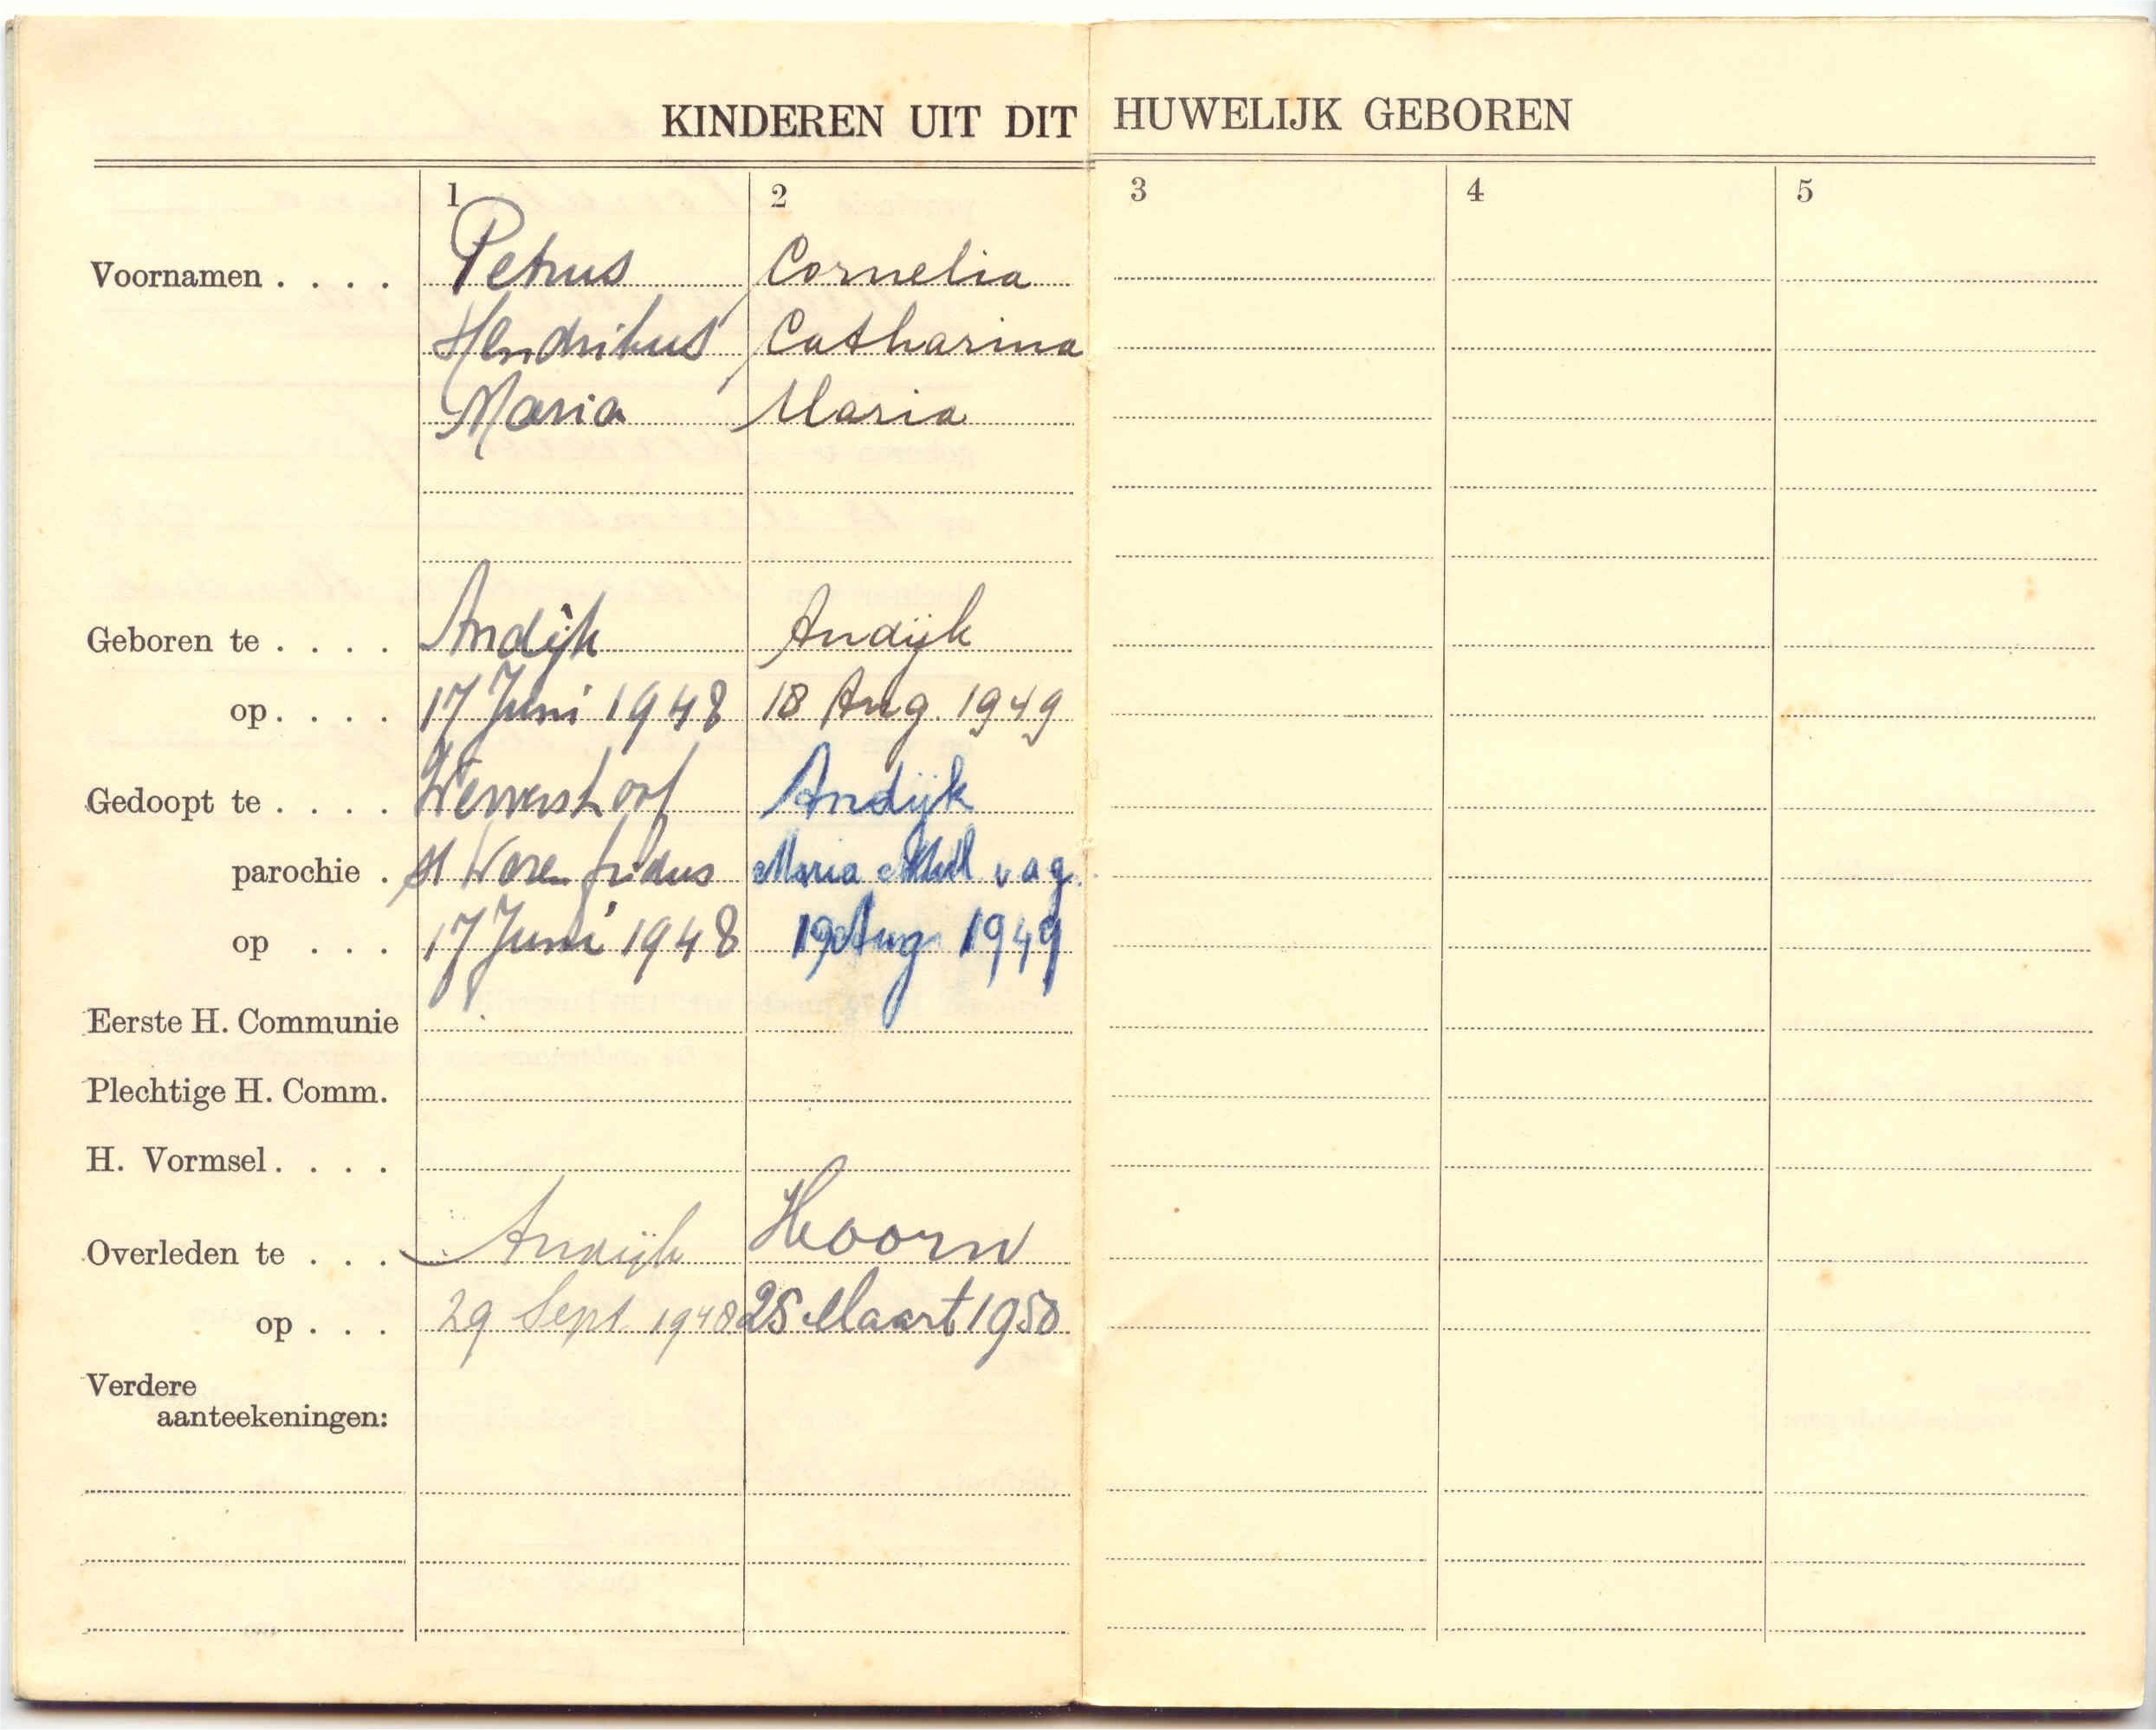 KINDEREN UIT DIT HUWELIJK GEBOREN
1 2 3 4 5
Voornamen . . . . Petrus Cornelia
Hendrikus Catharina
Maria Maria
Geboren te . . . . Andijk Andijk
op . . . . 17 Juni 1948 18 Aug. 1949
Gedoopt te . . . . Wervershoof Andijk
parochie . St Werenfridus Maria v a g.
op . . . 17 Juni 1948 19 Aug 1949
Eerste H. Communie
Plechtige H. Comm.
H. Vormsel . . . .
Overleden te . . . Andijk Hoorn
op . . . 29 Sept 1948 25 Maart 1950
Verdere
aanteekeningen: